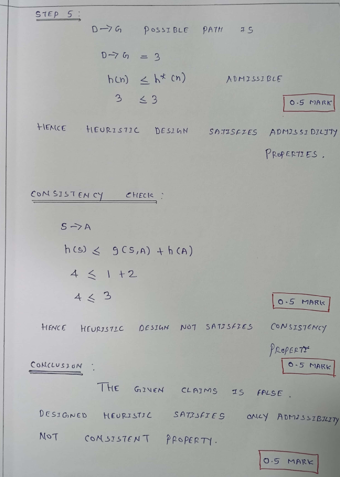 STEP 5:
D→G POSSIBLE PATH IS
D→G = 3
h(n) ≤ h*(n) ADMISSIBLE
3 ≤ 3
0.5 MARK
HENCE HEURISTIC DESIGN SATISFIES ADMISSIBILITY
PROPERTIES.
CONSISTENCY CHECK:
S→A
h(s) ≤ g(S,A) + h(A)
4 ≤ 1 + 2
4 ≤ 3
0.5 MARK
HENCE HEURISTIC DESIGN NOT SATISFIES CONSISTENCY
PROPERTY
0.5 MARK
CONCLUSION:
THE GIVEN CLAIMS IS FALSE.
DESIGNED HEURISTIC SATISFIES ONLY ADMISSIBILITY
NOT CONSISTENT PROPERTY.
0.5 MARK